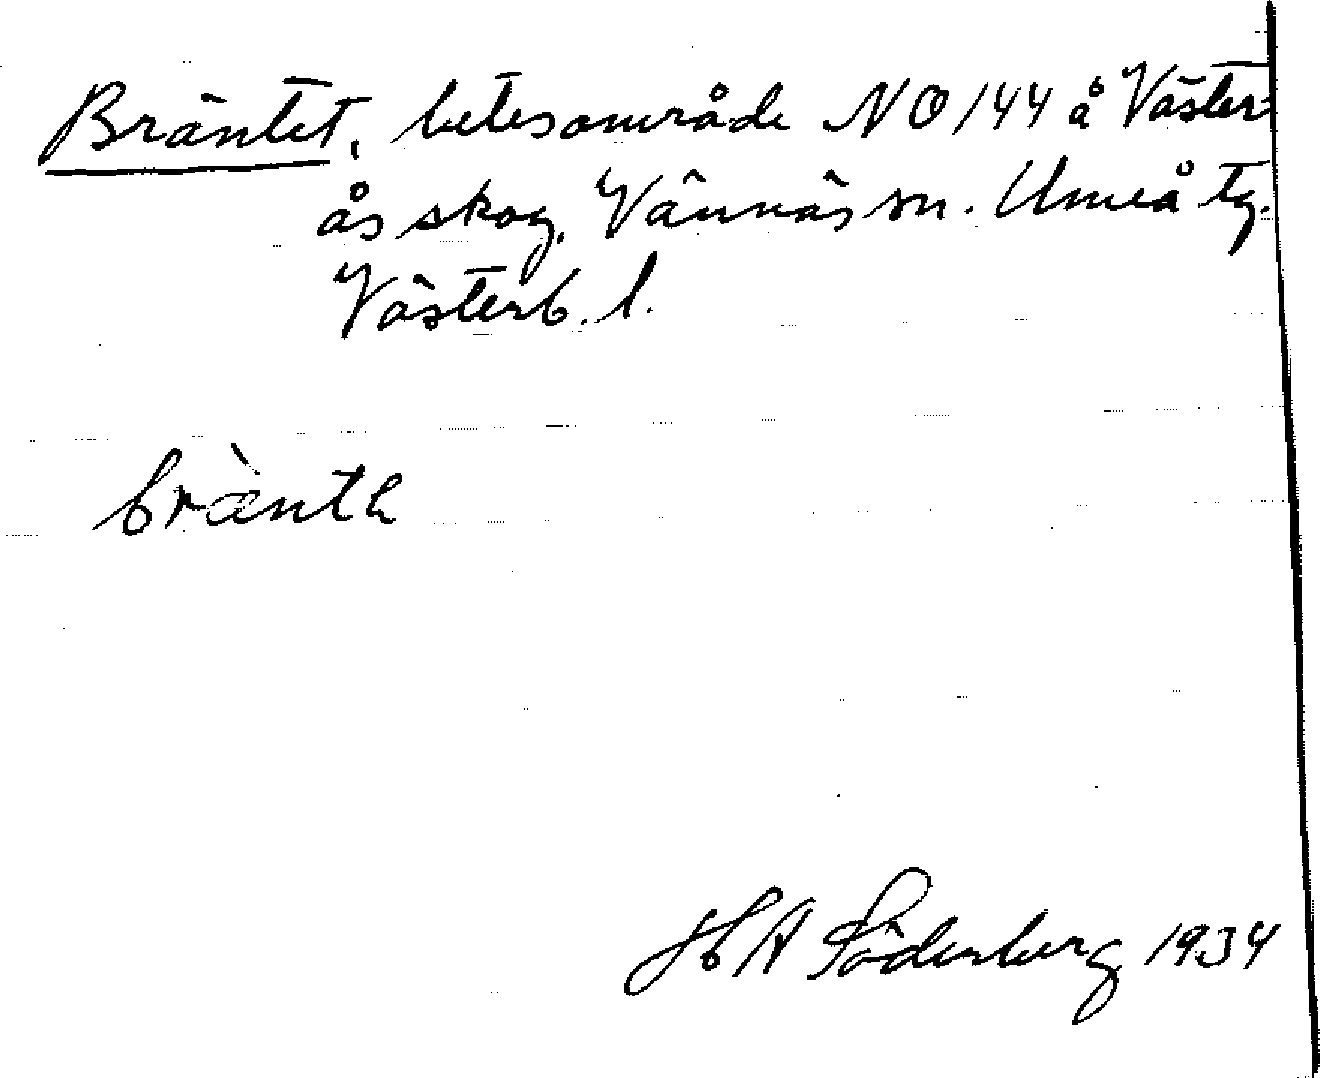 Bräntet, betesområde NO 144 å Väster-
ås skog, Vännäs sn. Umeå tg.
Västerb. l.
bræ̀nth
H A Söderberg 1934